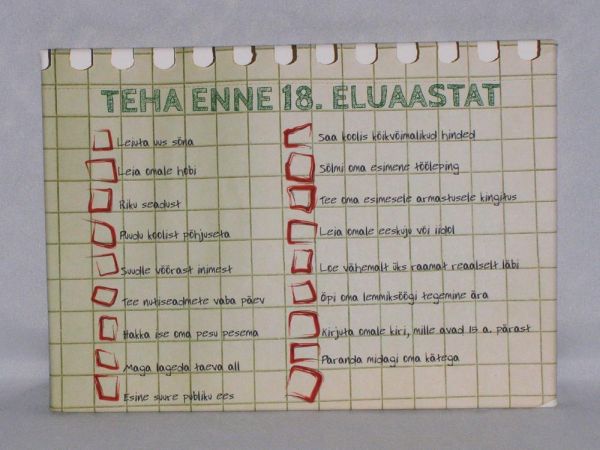 TEHA ENNE 18. ELUAASTAT
Leiuta uus sõna
Leia omale hobi
Riku seadust
Puudu koolist põhjuseta
Suudle võõrast inimest
Tee nutiseadmete vaba päev
Hakka ise oma pesu pesema
Maga lageda taeva all
Esine suure publiku ees
Saa koolis kõikvõimalikud hinded
Sõlmi oma esimene tööleping
Tee oma esimesele armastusele kingitus
Leia omale eeskuju või iidol
Loe vähemalt üks raamat reaalselt läbi
Õpi oma lemmiksöögi tegemine ära
Kirjuta omale kiri, mille avad 15 a. pärast
Paranda midagi oma kätega